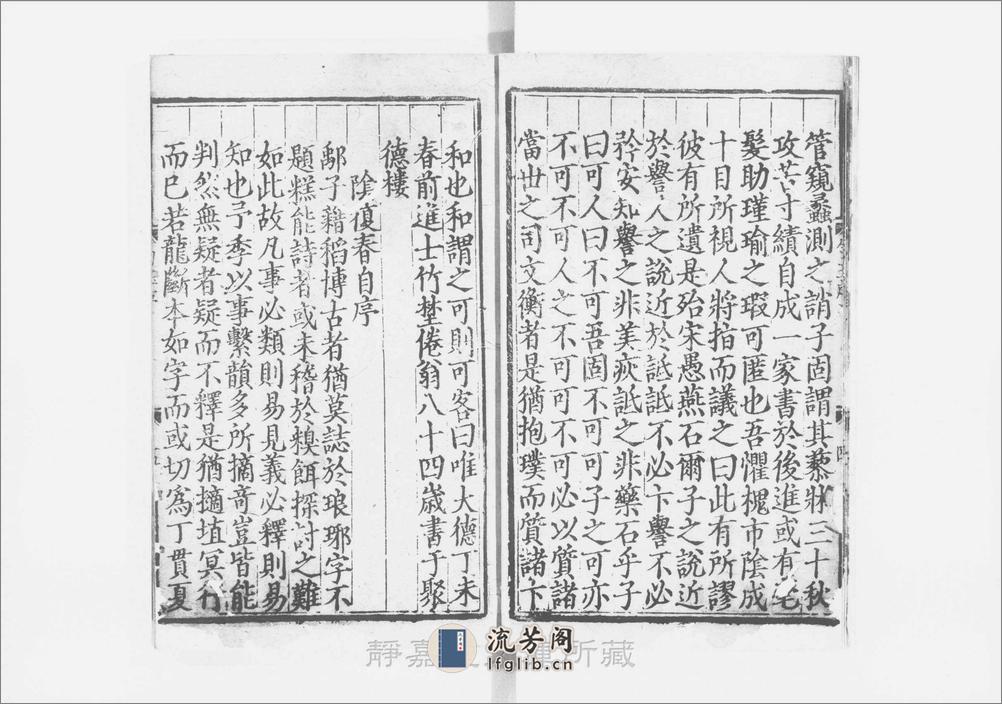 管窺蠡測之誚子固謂其藜牀三十秋
攻苦寸績自成一家書於後進或有
髮助瑾瑜之瑕可匿也吾懼槐市陰成
十目所視人將指而議之曰此有所謬
彼有所遺是殆宋愚燕石爾子之說近
於譽人之說近於詆詆不必卞譽不必
矜安知譽之非美疢詆之非藥石乎子
曰可人曰不可吾固不可可子之可亦
不可不可人之不可可不可必以質諸
當世之司文衡者是猶抱璞而質諸卞
和也和謂之可則可客曰唯大德丁未
春前進士竹埜倦翁八十四歲書于聚
德樓
陰復春自序
鄅子藉稻博古者猶莫誌於琅琊字不
題糕能詩者或未稽於糗餌探討之難
如此故凡事必類則易見義必釋則易
知也予季以事繫韻多所摘竒豈皆能
判然無疑者疑而不釋是猶擿埴冥行
而已若龍斷本如字而或切爲丁貫夏
靜嘉 所藏
流芳阁
lfglib.cn